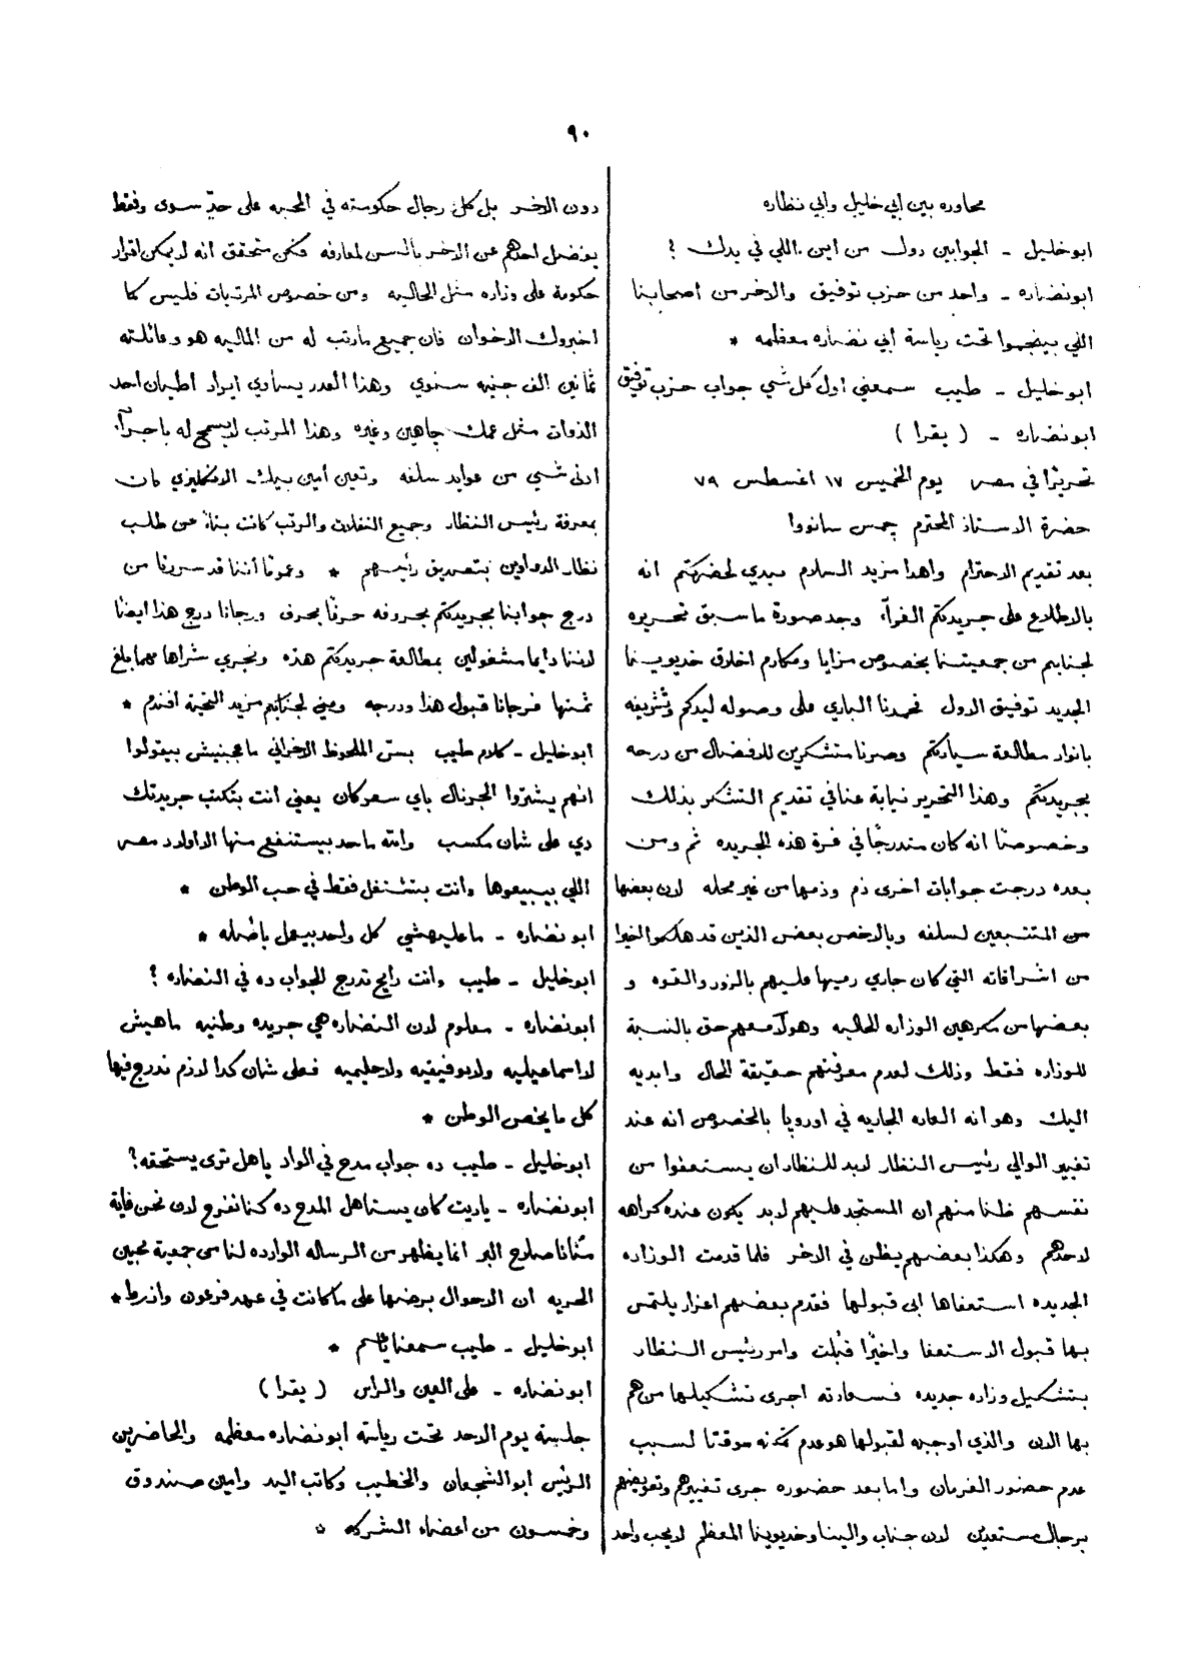 ٩٠
محاوره بين ابي خليل وابي نظاره
ابو خليل - الجوابين دول من اين اللي في يدك ؟
ابو نضاره - واحد من حزب توفيق والاخر من اصحابنا
اللي بينجموا تحت رياسة ابي نضاره معظمه *
ابو خليل - طيب سمعني اول كل شي جواب حزب توفيق
ابو نضاره - ( يقرا )
تحريرًا في مصر يوم الخميس ١٧ اغسطس ٧٩
حضرة الاستاذ المحترم جمس سانووا
بعد تقديم الاحترام واهدا مزيد السلام نبدي لحضرتكم انه
بالاطلاع على جريدتكم الغرآء وجد صورة ما سبق تحريره
لجنابكم من جمعيتنا بخصوص مزايا ومكارم اخلاق خديوينا
الجديد توفيق الاول نحمدنا الباري على وصوله ليدكم وتشريفه
بانوار مطالعة سيادتكم وصرنا متشكرين للافضال من درجه
بجريدتكم وهذا التحرير نيابة عنا في تقديم التشكر بذلك
وخصوصًا انه كان مندرجًا في غرة هذه الجريده ثم ومن
بعده درجت جوابات اخرى ذم وذمها من غير محله لان بعضها
من المتتبعين لسلفه وبالاخص بعض الذين قد هلكموا
من اشرافاته التي كان جاري رميها عليهم بالزور والقوه و
بعضها من مكرهين الوزاره الحاليه وهولآ معهم حق بالنسبة
للوزاره فقط وذلك لعدم معرفتهم حقيقة الحال وابديه
اليك وهو انه العاده الجاريه في اوروپا بالخصوص انه عند
تغيير الوالي رئيس النظار لابد للنظار ان يستعفوا من
نفسهم ظنا منهم ان المستجد عليهم لابد يكون عنده كراهه
لاحدهم وهكذا بعضهم يظن في الاخر فلما قدمت الوزاره
الجديده استعفاها ابى قبولها فقدم بعضهم اعزار يلتمس
بها قبول الاستعفا واخيرًا قبلت وامر رئيس النظار
بتشكيل وزاره جديده فسعادته اجرى تشكيلها من هم
بها الان والذي اوجبه لقبولها هو عدم تمكنه موقتا لسبب
عدم حضور الفرمان واما بعد حضوره جرى تغييرهم وتعويضهم
برجال مستعدين لان جناب والينا وخديوينا المعظم لا يحب واحد
دون الاخر بل كل رجال حكومته في المحبه على حدٍ سوى وفقط
يفضل احدهم عن الاخر بالسن لمعارفه فكن متحقق انه لا يمكن اقرار
حكومة على وزاره مثل الحاليه ومن خصوص المرتبات فليس كما
اخبروك الاخوان فان جميع مارتب له من الماليه هو وعائلته
ثمانين الف جنيه سنوي وهذا القدر يساوي ايراد اطيان احد
الذوات مثل عمك چاهين وغيره وهذا المرتب لا يسمح له باجرآء
ادنى شي من عوايد سلفه وتعين امين بيك الانكليزي كان
بمعرفة رئيس النظار وجميع النقلات والرتب كانت بناءً عن طلب
نظار الدواوين بتصديق رئيسهم * وعمومًا أننا قد سررنا من
درج جوابنا بجريدتكم بحروفه حرفًا بحرف ورجانا درج هذا ايضًا
لاننا دايما مشغولين بمطالعة جريدتكم هذه ونجري شراها مهما بلغ
ثمنها فرجانا قبول هذا ودرجه ومني لجنابكم مزيد التحية افندم *
ابو خليل - كلام طيب بس الملحوظ الاخراني ما عجبنيش بيقولوا
انهم يشتروا الجرنال باي سعر كان يعني انت بتكتب جريدتك
دي على شان مكسب والله ما حد بيستنفع منها الا اولاد مصر
اللي بيبيعوها وانت بتشتغل فقط في حب الوطن *
ابو نضاره - ما عليهشي كل واحد بيعمل باصله *
ابو خليل - طيب وانت رايح تدرج الجواب ده في النضاره ؟
ابو نضاره - معلوم لان النضاره هي جريده وطنيه ماهيش
لا اسماعيليه ولا توفيقيه ولا حليميه فعلى شان كدا لازم ندرج فيها
كل ما يخص الوطن *
ابو خليل - طيب ده جواب مدح في الواد يا هل ترى يستحقه؟
ابو نضاره - ياريت كان يستاهل المدح ده كنا نفرح لان نحن غاية
مُنانا صلاح البر انما يظهر من الرساله الوارده لنا من جمعية محبين
الحريه ان الاحوال برضها على ما كانت في عهد فرعون وازرط *
ابو خليل - طيب سمعنا ياعم *
ابو نضاره - على العين والراس ( يقرا )
جلسة يوم الاحد تحت رياسة ابو نضاره معظمه والحاضرين
الريس ابو الشجعان والخطيب وكاتب اليد وامين صندوق
وخمسون من اعضاء الشركه *